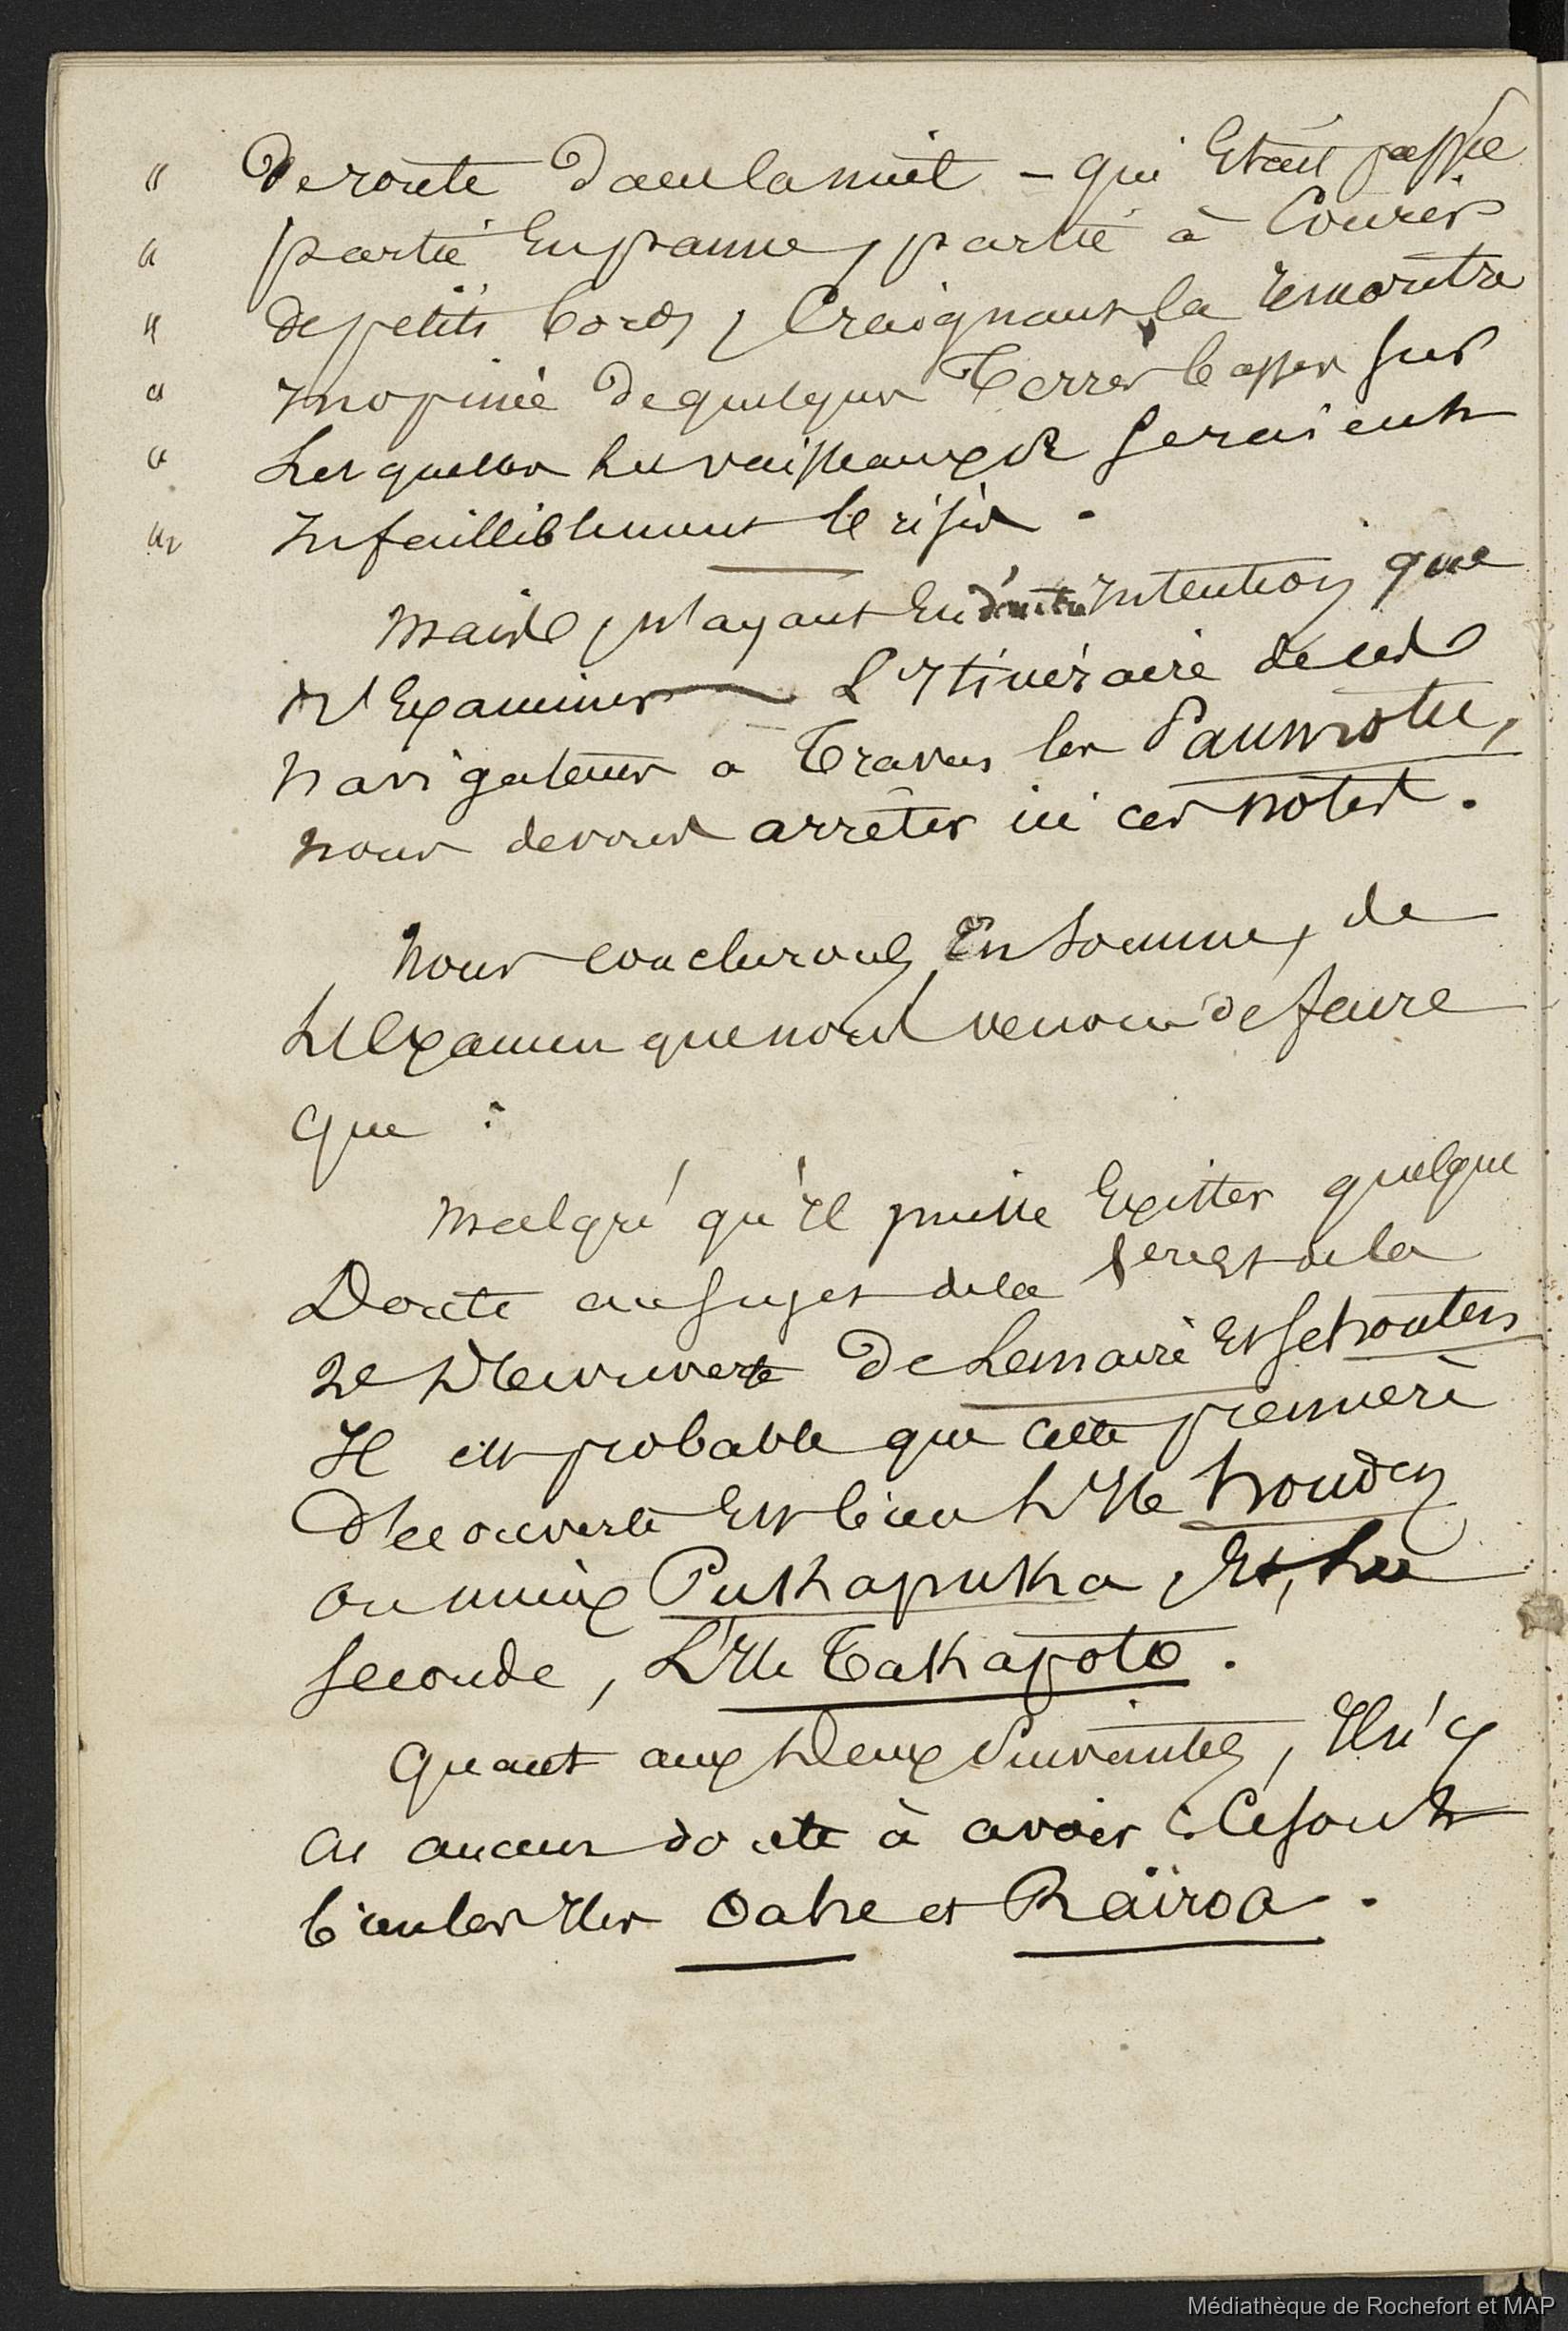 " De route dans la nuit - qui Etait passée
" partie En panne, partie à Courir
" de petits bords, Craignant la rencontre
" Inopinée De quelques Terres basses sur
" Lesquelles les vaisseaux se seraient
" Infailliblement brisés.
Mais, n'ayant Eu d'autre Intention que
d'Examiner L'Itinéraire de ces
navigateurs à Travers les Paumotu,
nous devons arrêter ici ces notes.
Nous conclurons, En somme, de
L'Examen que nous venons de faire
que :
Malgré qu'Il puisse Exister quelque
Doute au sujet de la 1ere et de la
2e Découverte De Lemaire Et Schouten
Il est probable que cette première
Découverte Est bien L'Ile Houden
ou mieux Pukapuka Et, la
seconde, L'Ile Takapoto.
Quant aux Deux Suivantes, Il n'y
a aucun doute à avoir : Ce sont
bien les Iles Oahe et Raïroa.
Médiathèque de Rochefort et MAP